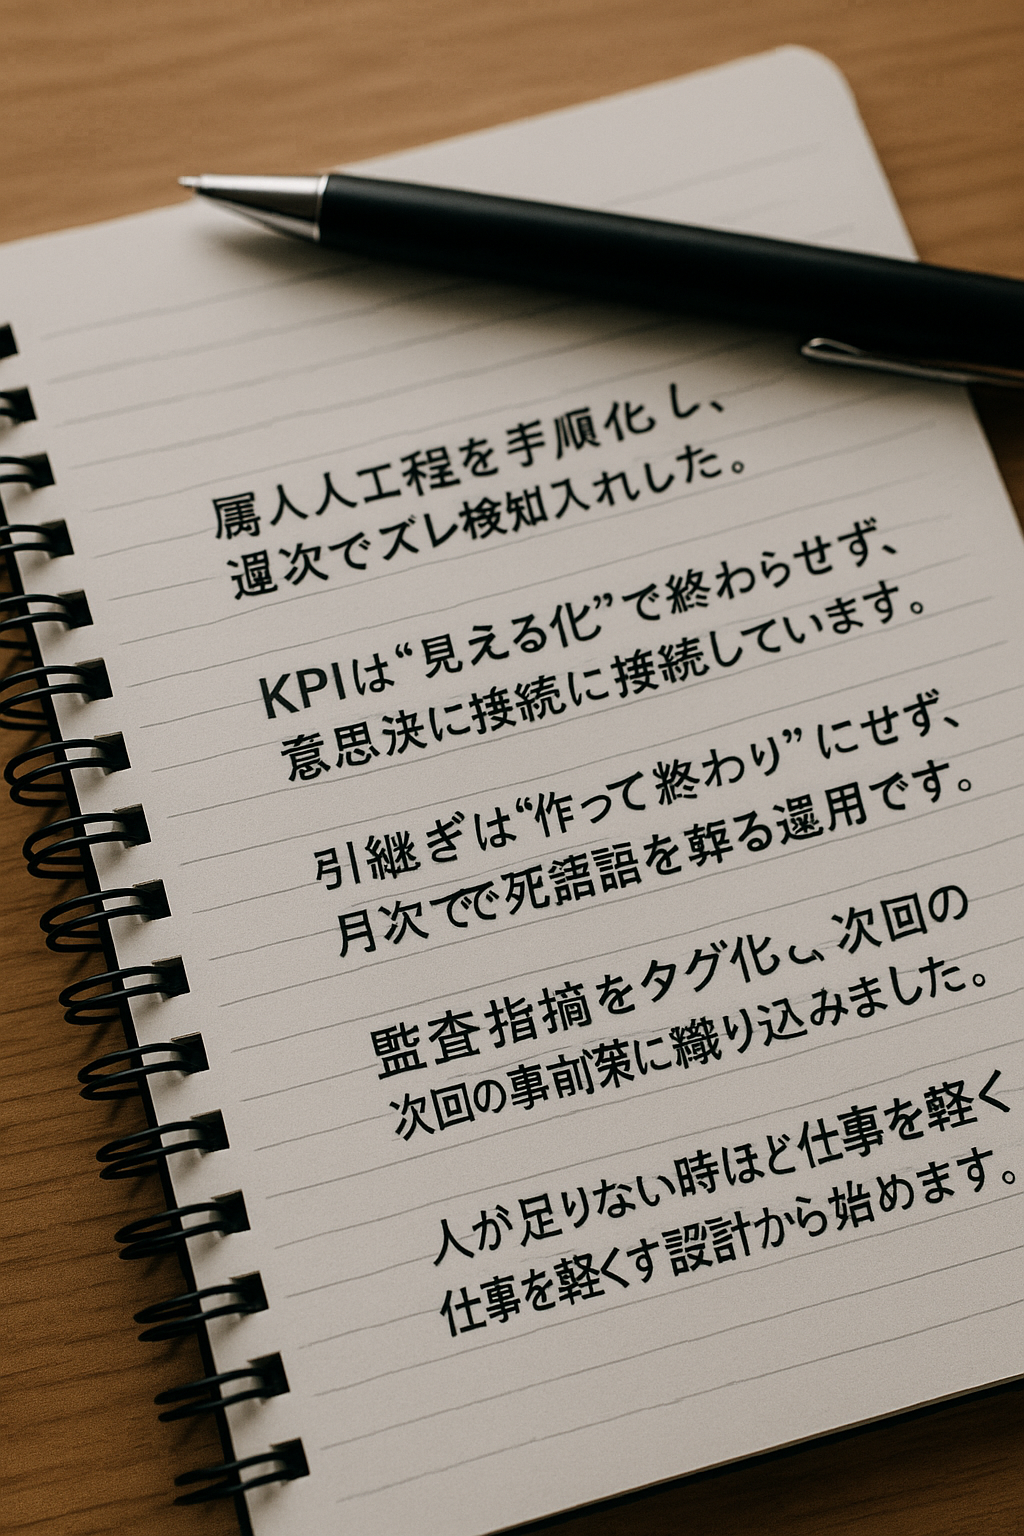 属人人工程を手順化し、
週次でズレ検知入れした。
KPIは“見える化”で終わらせず、
意思決に接続に接続しています。
引継ぎは“作って終わり”にせず、
月次でで死語を る運用です。
監査指摘をタグ化し、次回の
次回の事前策に織り込みました。
人が足りない時ほど仕事を軽く
仕事を軽くす設計から始めます。